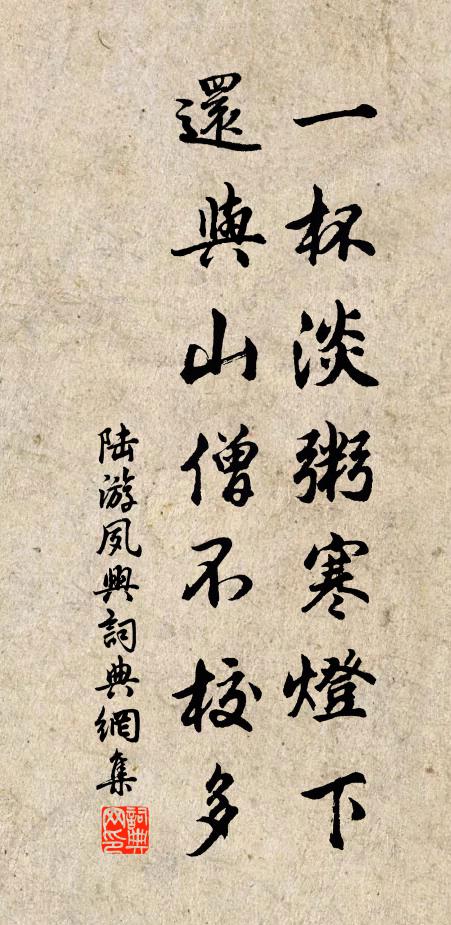 一杯淡粥寒燈下
還與山僧不校多
陆游夙興詞典網集
詞典网印